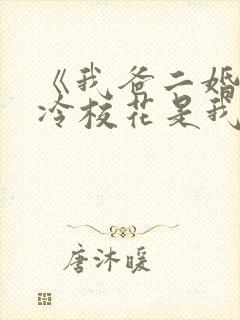 《我爸二婚
冷校花是我
唐沐暖